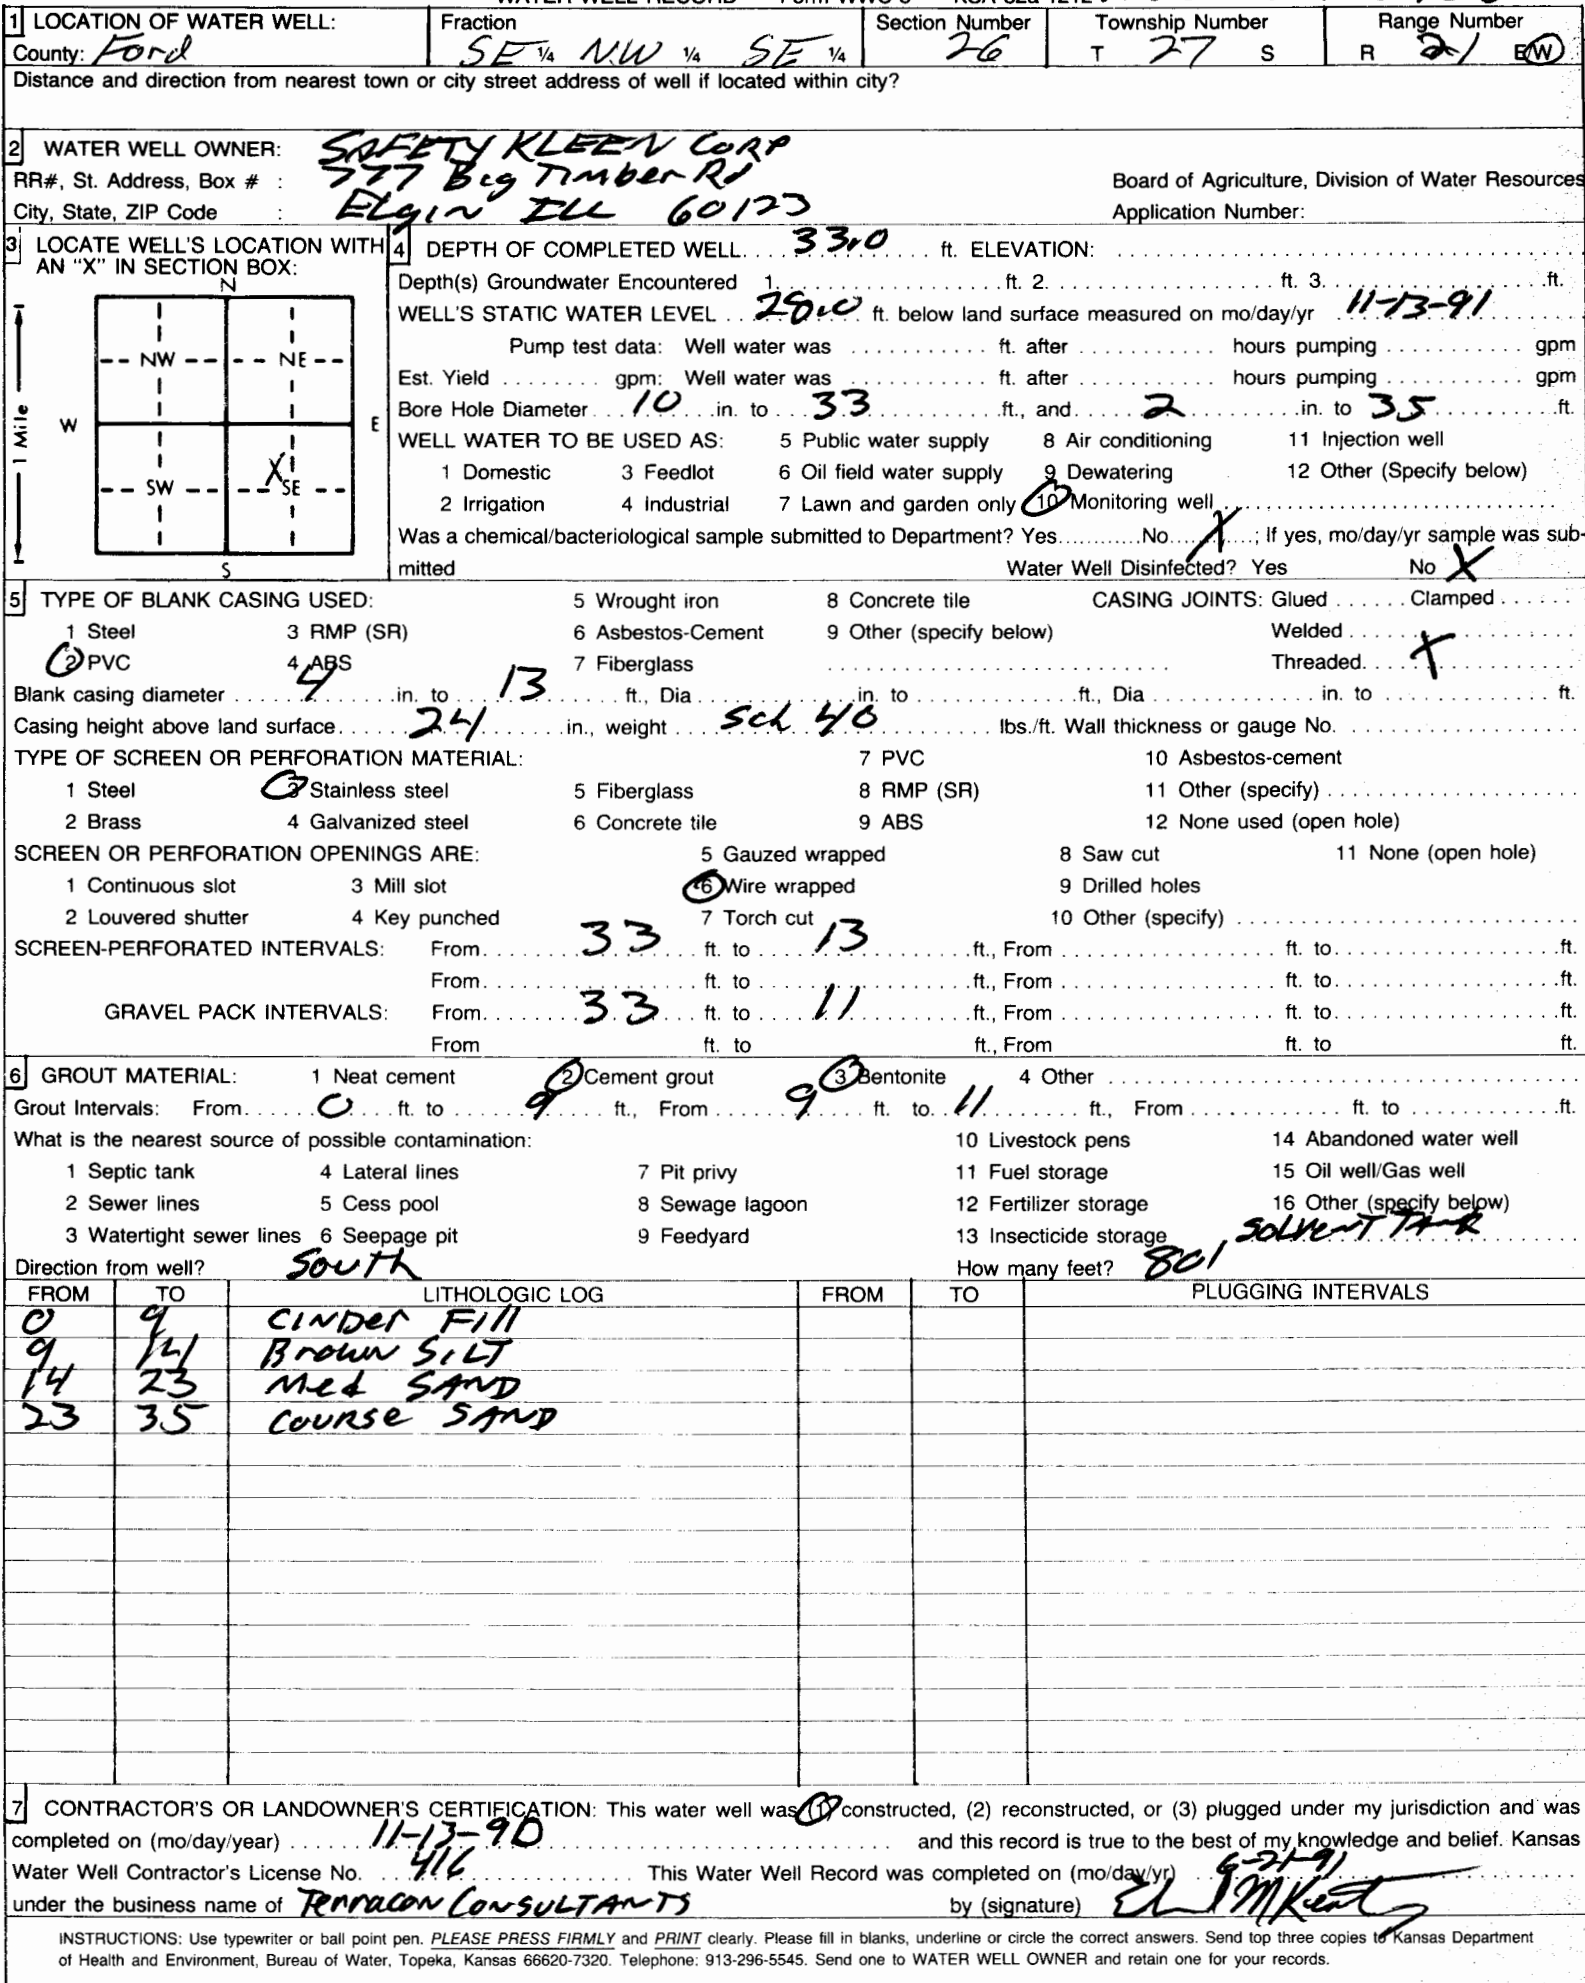 WATER WELL RECORD Form WWC-5 KSA 82a-1212
1 LOCATION OF WATER WELL: Fraction Section Number Township Number Range Number
County: Ford SE ¼ NW ¼ SE ¼ 26 T 27 S R 21 E/W
Distance and direction from nearest town or city street address of well if located within city?
2 WATER WELL OWNER: SAFETY KLEEN CORP
RR#, St. Address, Box # : 777 Big Timber Rd Board of Agriculture, Division of Water Resources
City, State, ZIP Code : Elgin ILL 60123 Application Number:
3 LOCATE WELL'S LOCATION WITH AN "X" IN SECTION BOX:
N
NW NE
W E
1 Mile
X
SW SE
S
4 DEPTH OF COMPLETED WELL 33.0 ft. ELEVATION:
Depth(s) Groundwater Encountered 1. ft. 2. ft. 3. ft.
WELL'S STATIC WATER LEVEL 28.0 ft. below land surface measured on mo/day/yr 11-13-91
Pump test data: Well water was ft. after hours pumping gpm
Est. Yield gpm: Well water was ft. after hours pumping gpm
Bore Hole Diameter 10 in. to 33 ft., and 2 in. to 35 ft.
WELL WATER TO BE USED AS: 5 Public water supply 8 Air conditioning 11 Injection well
1 Domestic 3 Feedlot 6 Oil field water supply 9 Dewatering 12 Other (Specify below)
2 Irrigation 4 Industrial 7 Lawn and garden only 10 Monitoring well
Was a chemical/bacteriological sample submitted to Department? Yes No X ; If yes, mo/day/yr sample was sub-
mitted Water Well Disinfected? Yes No X
5 TYPE OF BLANK CASING USED: 5 Wrought iron 8 Concrete tile CASING JOINTS: Glued Clamped
1 Steel 3 RMP (SR) 6 Asbestos-Cement 9 Other (specify below) Welded
2 PVC 4 ABS 7 Fiberglass Threaded X
Blank casing diameter 4 in. to 13 ft., Dia in. to ft., Dia in. to ft.
Casing height above land surface 24 in., weight Sch 40 lbs./ft. Wall thickness or gauge No.
TYPE OF SCREEN OR PERFORATION MATERIAL: 7 PVC 10 Asbestos-cement
1 Steel 3 Stainless steel 5 Fiberglass 8 RMP (SR) 11 Other (specify)
2 Brass 4 Galvanized steel 6 Concrete tile 9 ABS 12 None used (open hole)
SCREEN OR PERFORATION OPENINGS ARE: 5 Gauzed wrapped 8 Saw cut 11 None (open hole)
1 Continuous slot 3 Mill slot 6 Wire wrapped 9 Drilled holes
2 Louvered shutter 4 Key punched 7 Torch cut 10 Other (specify)
SCREEN-PERFORATED INTERVALS: From 33 ft. to 13 ft., From ft. to ft.
From ft. to ft., From ft. to ft.
GRAVEL PACK INTERVALS: From 33 ft. to 11 ft., From ft. to ft.
From ft. to ft., From ft. to ft.
6 GROUT MATERIAL: 1 Neat cement 2 Cement grout 3 Bentonite 4 Other
Grout Intervals: From 0 ft. to 9 ft., From 9 ft. to 11 ft., From ft. to ft.
What is the nearest source of possible contamination: 10 Livestock pens 14 Abandoned water well
1 Septic tank 4 Lateral lines 7 Pit privy 11 Fuel storage 15 Oil well/Gas well
2 Sewer lines 5 Cess pool 8 Sewage lagoon 12 Fertilizer storage 16 Other (specify below)
3 Watertight sewer lines 6 Seepage pit 9 Feedyard 13 Insecticide storage SOLVENT TANK
Direction from well? South How many feet? 80'
FROM TO LITHOLOGIC LOG FROM TO PLUGGING INTERVALS
0 9 CINDer Fill
9 14 Brown SILT
14 23 Med SAND
23 35 COURSE SAND
7 CONTRACTOR'S OR LANDOWNER'S CERTIFICATION: This water well was (1) constructed, (2) reconstructed, or (3) plugged under my jurisdiction and was
completed on (mo/day/year) 11-13-90 and this record is true to the best of my knowledge and belief. Kansas
Water Well Contractor's License No. 416 This Water Well Record was completed on (mo/day/yr) 6-21-91
under the business name of Terracon CONSULTANTS by (signature)
INSTRUCTIONS: Use typewriter or ball point pen. PLEASE PRESS FIRMLY and PRINT clearly. Please fill in blanks, underline or circle the correct answers. Send top three copies to Kansas Department
of Health and Environment, Bureau of Water, Topeka, Kansas 66620-7320. Telephone: 913-296-5545. Send one to WATER WELL OWNER and retain one for your records.